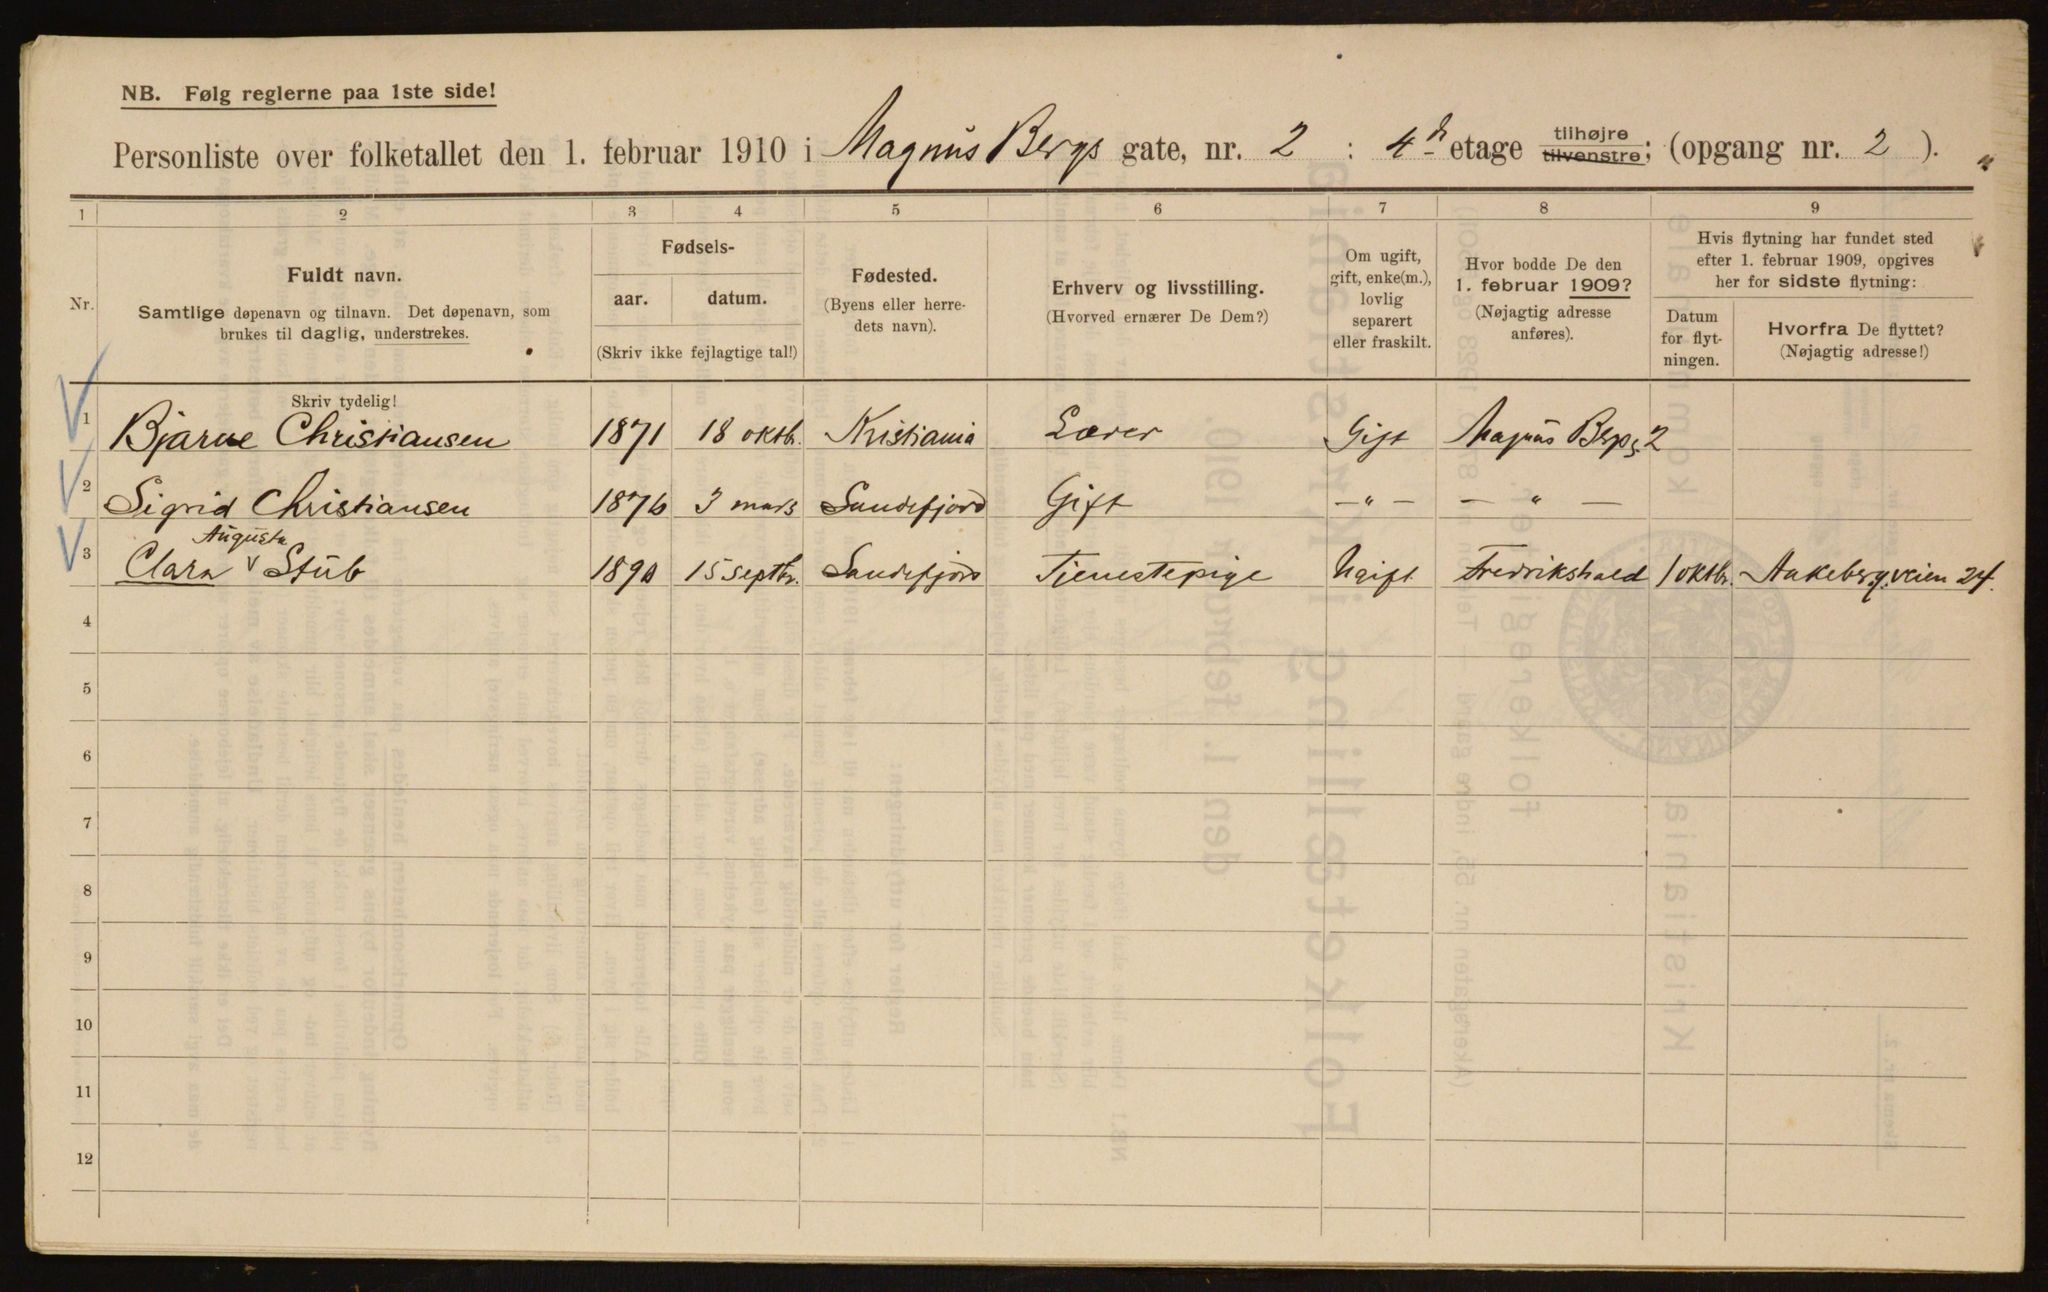 NB. Følg reglerne paa 1ste side!
Personliste over folketallet den 1. februar 1910 i Magnus Bergs gate, nr. 2 : 4de etage tilhøjre tilvenstre; (opgang nr. 2 ).
1 2 3 4 5 6 7 8 9
Nr.
Fuldt navn.
Samtlige døpenavn og tilnavn. Det døpenavn, som
brukes til daglig, understrekes.
Fødsels-
aar. datum.
(Skriv ikke fejlagtige tal!)
Fødested.
(Byens eller herre-
dets navn).
Erhverv og livsstilling.
(Hvorved ernærer De Dem?)
Om ugift,
gift, enke(m.),
lovlig
separert
eller fraskilt.
Hvor bodde De den
1. februar 1909?
(Nøjagtig adresse
anføres).
Hvis flytning har fundet sted
efter 1. februar 1909, opgives
her for sidste flytning:
Datum
for flyt-
ningen.
Hvorfra De flyttet?
(Nøjagtig adresse!)
Skriv tydelig!
1 Bjarne Christiansen 1871 18 oktb. Kristiania Lærer Gift Magnus Bergs 2
2 Sigrid Christiansen 1876 3 mars Sandefjord Gift —"— — " —
Augusta
3 Clara v Stub 1890 15 septbr. Sandefjord Tjenestepige Ugift Fredrikshald 1 oktbr. Aakebergveien 24.
4
5
6
7
8
9
10
11
12